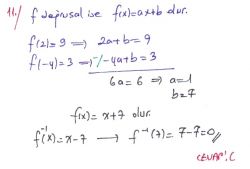 11./ f doğrusal ise f(x)=ax+b olur.
f(2)=9 ⇒ 2a+b=9
f(-4)=3 ⇒ -/ -4a+b=3
6a=6 ⇒ a=1
b=7
f(x)=x+7 olur.
f⁻¹(x)=x-7 → f⁻¹(7)=7-7=0//
CEVAP: C